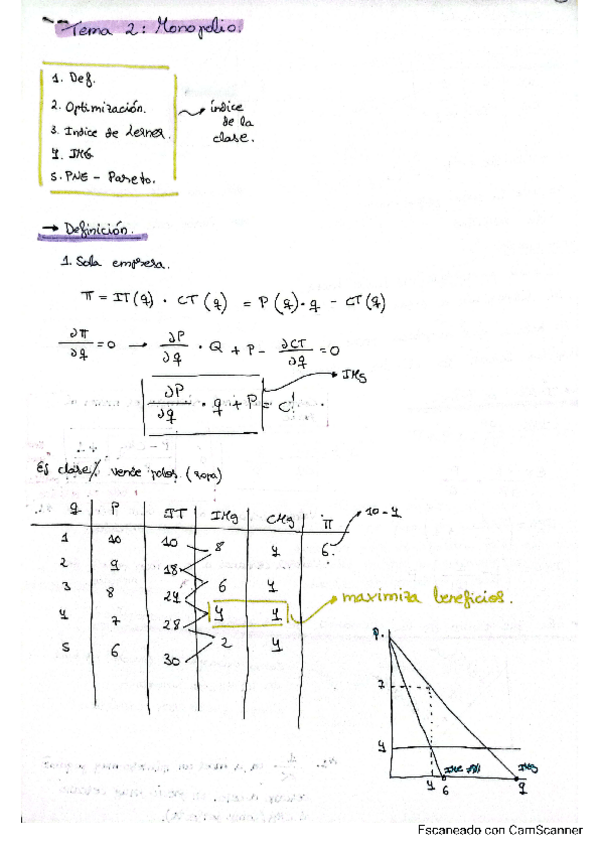 Tema 2: Monopolio.
1. Def.
2. Optimización.
3. Indice de Lerner.
4. IMG
5. PNE - Pareto.
índice de la clase.
→ Definición.
1. Sola empresa.
π = IT(q) · CT(q) = P(q)·q - CT(q)
∂π/∂q = 0 → ∂P/∂q · Q + P - ∂CT/∂q = 0
∂P/∂q · q + P = C'
→ IMg
Ej clase/ vende polos (ropa)
q P IT IMg CMg π → 10-4
1 10 10 8 4 6
2 9 18
3 8 24 6 4
4 7 28 4 4 → maximiza beneficios.
5 6 30 2 4
P.
7
4
IMg
4 6 9
Escaneado con CamScanner